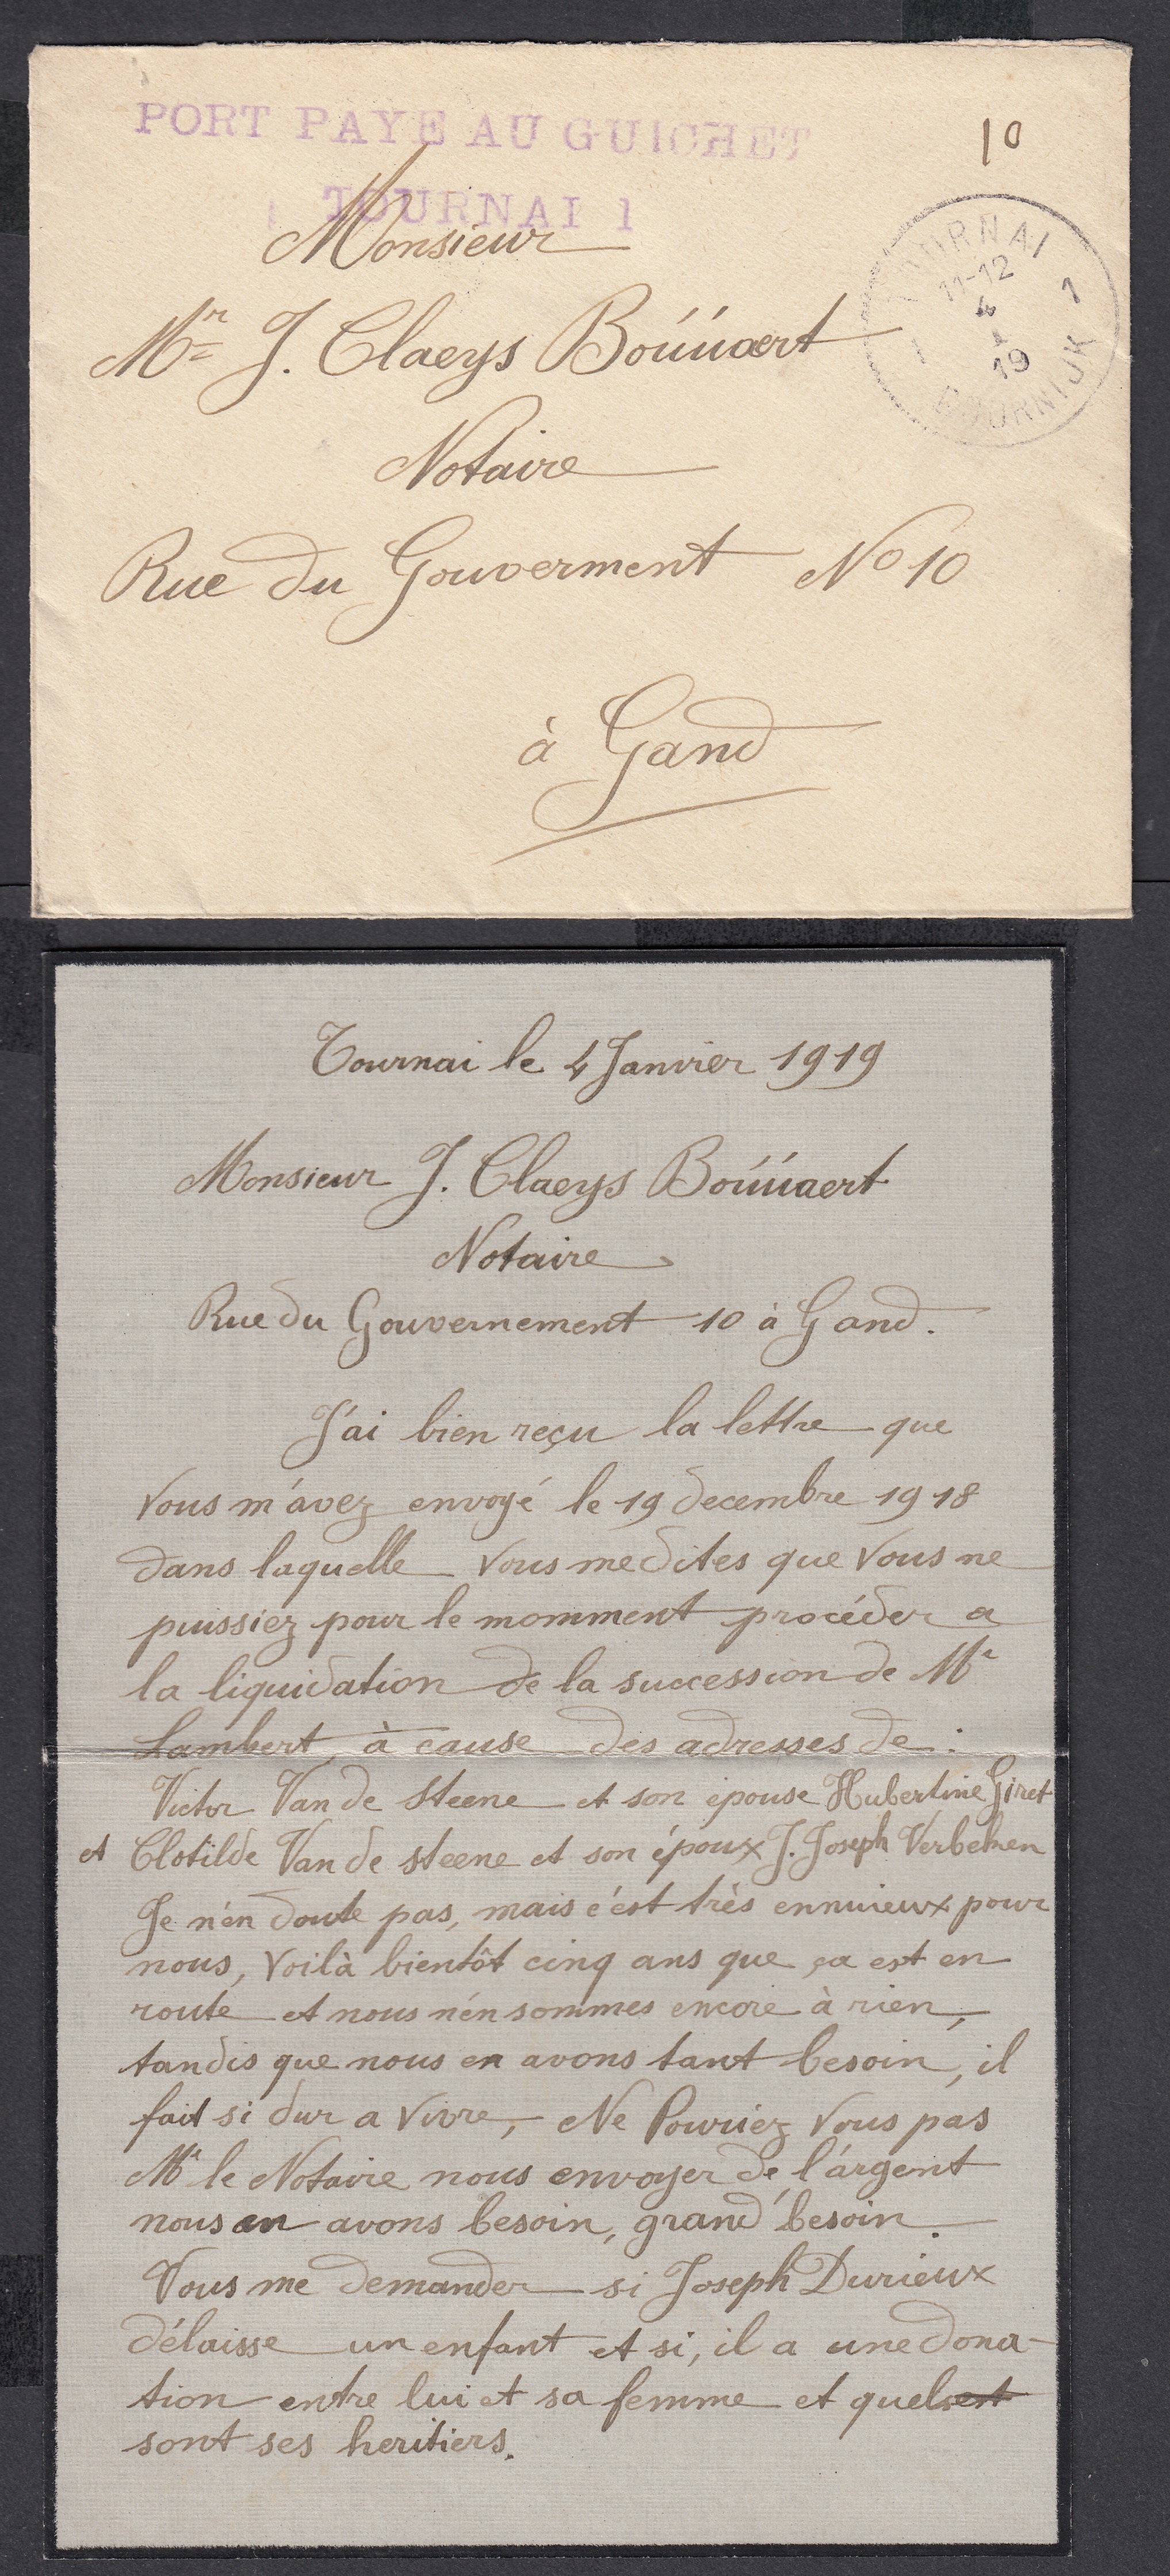 PORT PAYE AU GUICHET
TOURNAI 1
10
TOURNAI 1
11-12
4
1
19
DOORNIJK
Monsieur
Mr J. Claeys Boúúaert
Notaire
Rue du Gouverment No 10
à Gand
Tournai le 4 Janvier 1919
Monsieur J. Claeys Boúúaert
Notaire
Rue du Gouvernement 10 à Gand.
J'ai bien reçu la lettre que
vous m'avez envoyé le 19 decembre 1918
dans laquelle vous me dites que vous ne
puissiez pour le momment procéder a
la liquidation de la succession de Mr
Lambert, à cause des adresses de :
Victor Van de Steene et son épouse Hubertine Giret
et Clotilde Van de steene et son époux J. Joseph Verbeken
Je n'en doute pas, mais c'est très ennuieux pour
nous, voilà bientôt cinq ans que ça est en
route et nous n'en sommes encore à rien,
tandis que nous en avons tant besoin, il
fait si dur a vivre, Ne Pouriez vous pas
Mr le Notaire nous envoyer de l'argent
nous en avons besoin, grand besoin.
Vous me demander si Joseph Durieux
délaisse un enfant et si, il a une dona-
tion entre lui et sa femme et quels est
sont ses heritiers.